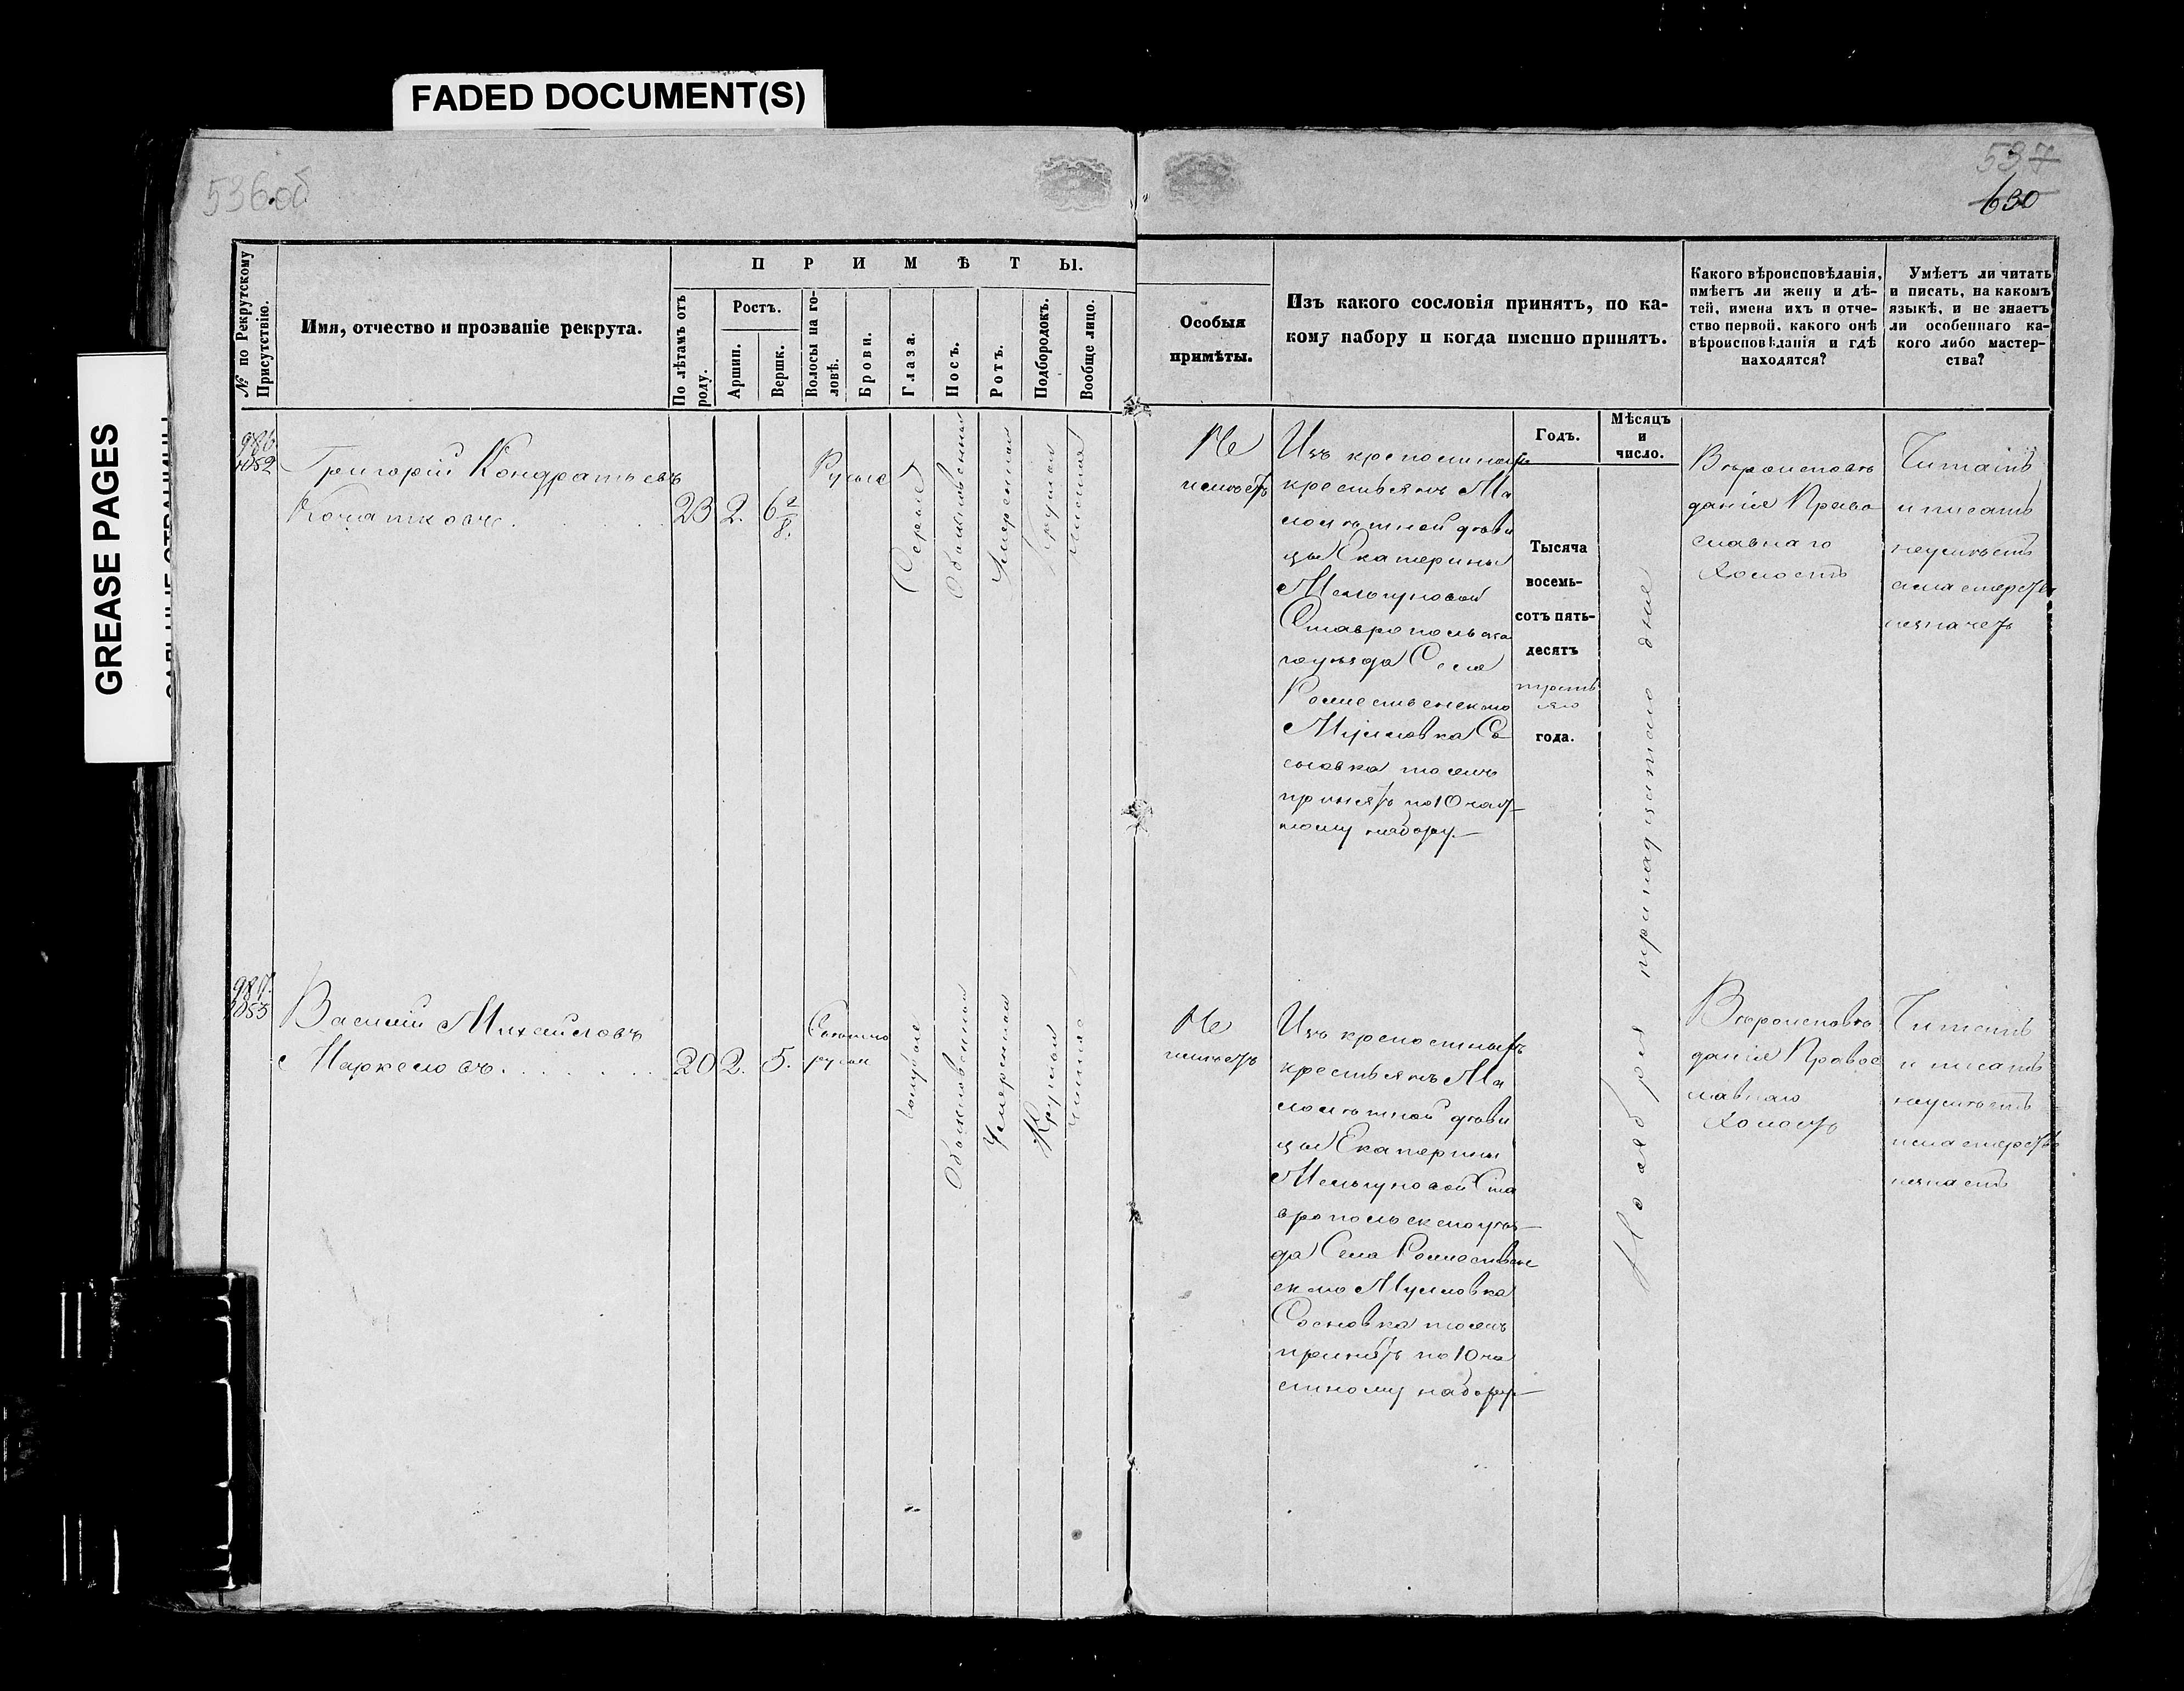 FADED DOCUMENT(S)
GREASE PAGES
536об
537
630
№ по Рекрутскому Присутствію.
Имя, отчество и прозваніе рекрута.
ПРИМѢТЫ.
По лѣтамъ отъ роду.
Ростъ.
Аршин.
Вершк.
Волосы на го-
ловѣ.
Брови.
Глаза.
Носъ.
Ротъ.
Подбородокъ.
Вообще лицо.
Особыя
примѣты.
Изъ какого сословія принятъ, по ка-
кому набору и когда именно принятъ.
Какого вѣроисповѣданія,
имѣетъ ли жену и дѣ-
тей, имена ихъ и отче-
ство первой, какого онѣ
вѣроисповѣданія и гдѣ
находятся?
Умѣетъ ли читать
и писать, на какомъ
языкѣ, и не знаетъ
ли особеннаго ка-
кого либо мастер-
ства?
Годъ.
Мѣсяцъ
и
число.
986
1052
Григорій Кондратьевъ
23 2. 6 2/8.
Русые
Серые
Обыкновенный
Умеренной
Круглой
Чистое
Не
имѣетъ
Изъ крепостныхъ
крестьянъ Ма
лолѣтной дѣви
цы Екатерины
Мельгуновой
Ставропольска
го уѣзда Села
Рождественскаго
Мулловка Со
сновка тожъ
принятъ по 10 част
ному набору.
Тысяча
восемь-
сотъ пять-
десятъ
третья
го
года.
Ноября тринадцатаго дня
Вѣроисповѣ
данія Право
славнаго
Холостъ
Читать
и писать
неумѣетъ
а мастерства
незнаетъ
987.
1053
Василій Михайловъ
Маркеловъ.
20 2. 5.
Светло
русые
Голубые
Обыкновенной
Умеренной
Круглой
Чистое
Не
имѣетъ
Изъ крепостныхъ
крестьянъ Ма
лолѣтной дѣви
цы Екатерины
Мельгуновой Ста
вропольскаго уѣз
да Села Рождествен
скаго Мулловка
Сосновка тожъ
принятъ по 10 ча
стному набору
Вѣроисповѣ
данія Правос
лавнаго
Холостъ
Читать
и писать
неумѣетъ
и мастерства
незнаетъ